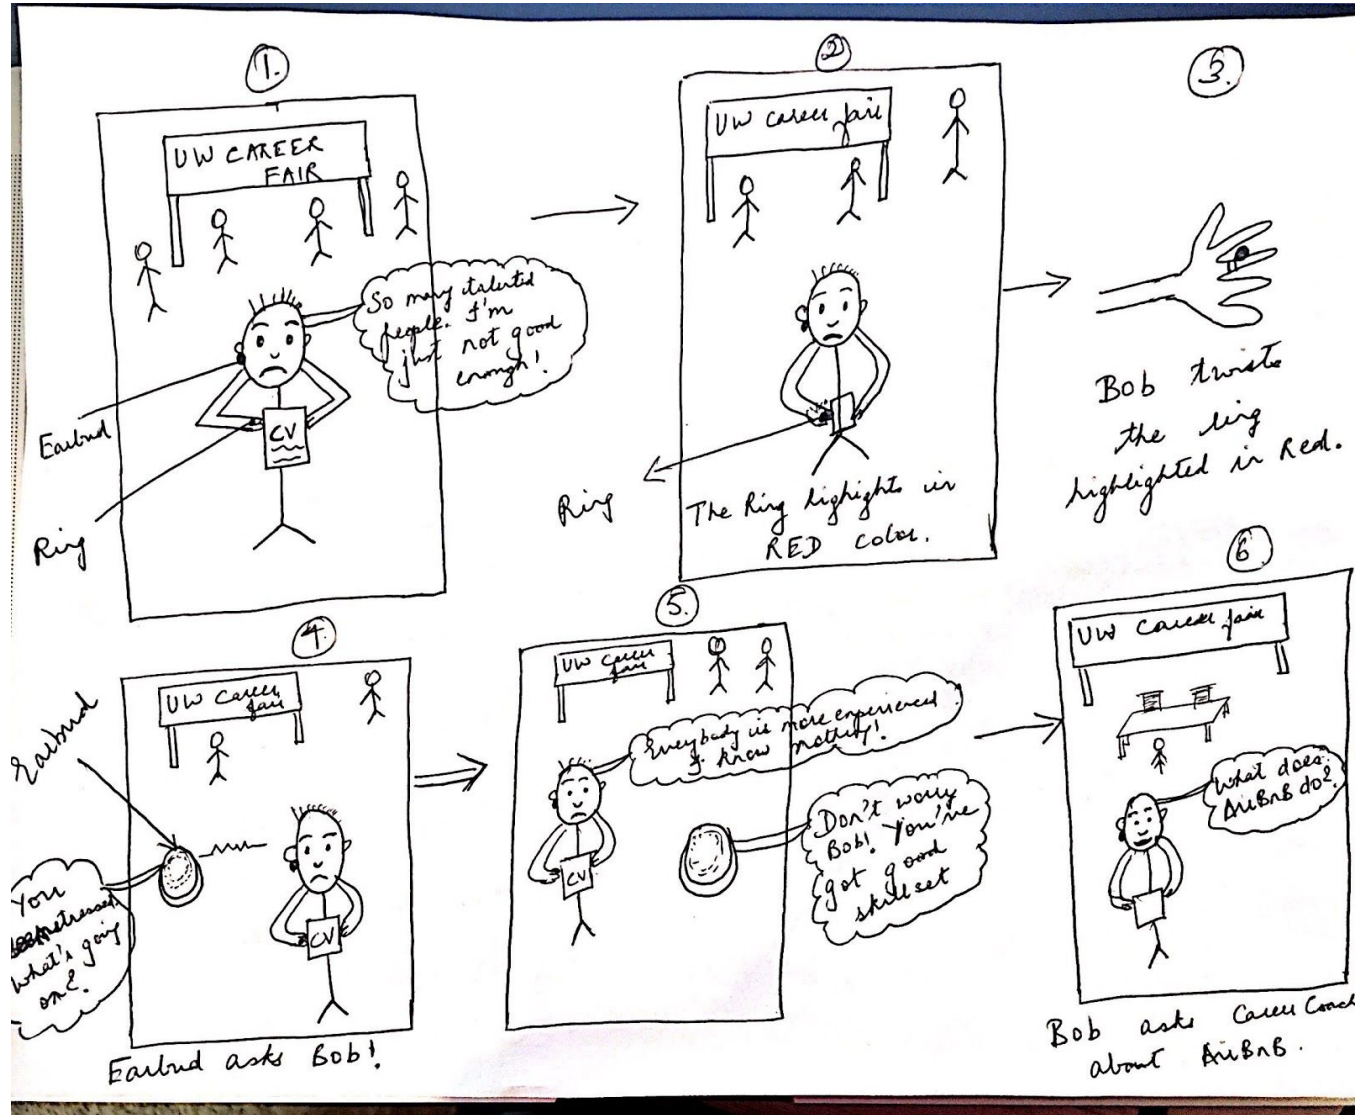 1.
UW CAREER
FAIR
So many talented
people. I'm
just not good
enough!
Earbud
CV
Ring
2
UW career fair
Ring
The Ring highights in
RED color.
3.
Bob twists
the ring
highlighted in Red.
4
Earbud
UW Career
fair
You
stressed
what's going
on?
CV
Earbud asks Bob!
5.
UW Career
fair
Everybody is more experienced.
I know nothing!
Don't worry
Bob! You've
got good
skillset
CV
6
UW Career fair
What does
AirBnB do?
Bob asks Career Coach
about AirBnB.